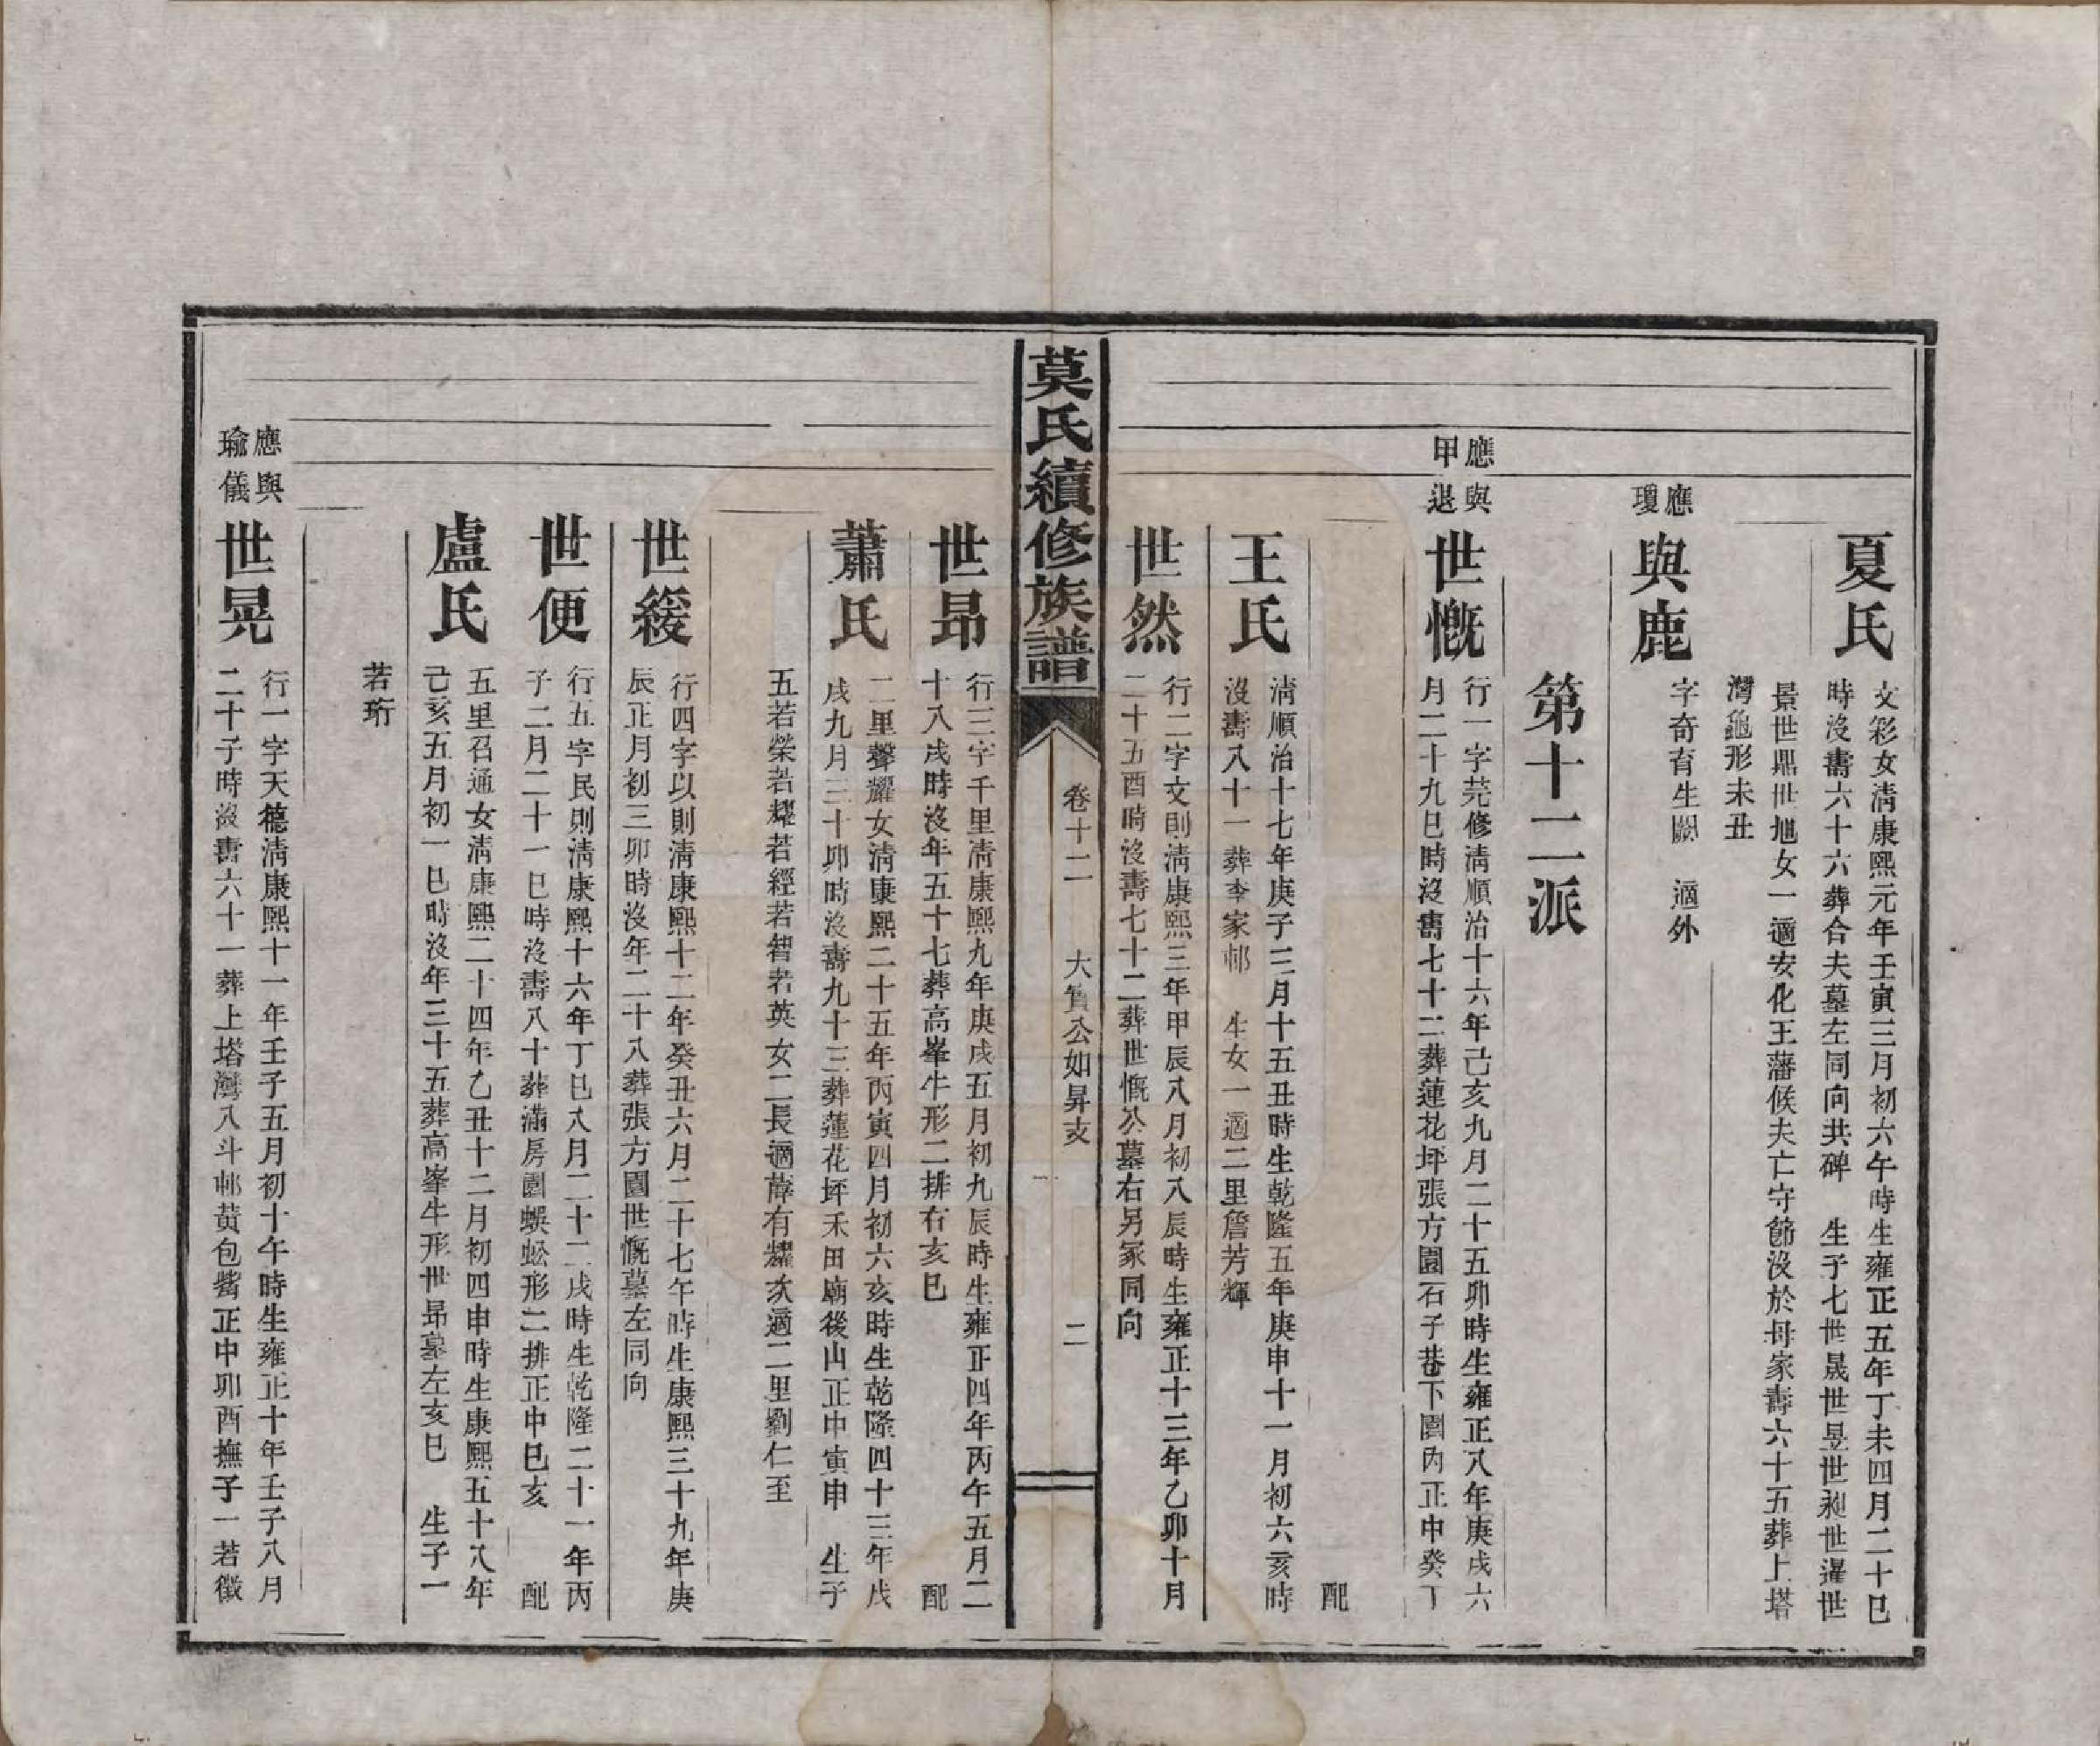 夏氏
文彩女清康熙元年壬寅三月初六午時生雍正五年丁未四月二十巳
時沒壽六十六葬合夫墓左同向共碑 生子七世晟世昱世昶世暹世
景世鼎世旭女一適安化王藩候夫亡守節沒於母家壽六十五葬上塔
灣龜形未丑
應瓊
與鹿
字奇育生闕 適外
第十二派
應甲
與退
世慨
行一字芫修清順治十六年己亥九月二十五卯時生雍正八年庚戌六
月二十九巳時沒壽七十二葬蓮花坪張方園石子巷下園內正中癸丁
配
王氏
清順治十七年庚子三月十五丑時生乾隆五年庚申十一月初六亥時
沒壽八十一葬李家邨 生女一適二里詹芳輝
世然
行二字文則清康熙三年甲辰八月初八辰時生雍正十三年乙卯十月
二十五酉時沒壽七十二葬世慨公墓右另冢同向
莫氏續修族譜
卷十二
大賓公如昇支
二
世昂
行三字千里清康熙九年庚戌五月初九辰時生雍正四年丙午五月二
十八戌時沒年五十七葬高峯牛形二排右亥巳 配
蕭氏
二里聲耀女清康熙二十五年丙寅四月初六亥時生乾隆四十三年戊
戌九月三十卯時沒壽九十三葬蓮花坪禾田廟後山正中寅申 生子
五若榮若耀若經若智若英女二長適薛有耀次適二里劉仁至
世綬
行四字以則清康熙十二年癸丑六月二十七午時生康熙三十九年庚
辰正月初三卯時沒年二十八葬張方園世慨墓左同向
世便
行五字民則清康熙十六年丁巳八月二十二戌時生乾隆二十一年丙
子二月二十一巳時沒壽八十葬滿房園蜈蚣形二排正中巳亥 配
盧氏
五里召通女清康熙二十四年乙丑十二月初四申時生康熙五十八年
己亥五月初一巳時沒年三十五葬高峯牛形世昂墓左亥巳 生子一
若珩
應瑜
與儀
世晃
行一字天德清康熙十一年壬子五月初十午時生雍正十年壬子八月
二十子時沒壽六十一葬上塔灣八斗邨黃包觜正中卯酉撫子一若徽